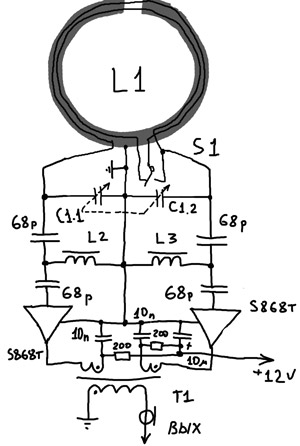 L1
S1
C1.1
C1.2
68p
68p
L2
L3
68p
68p
S868T
10n
S868T
10n
200
+
200
10μ
+12V
T1
ВЫХ